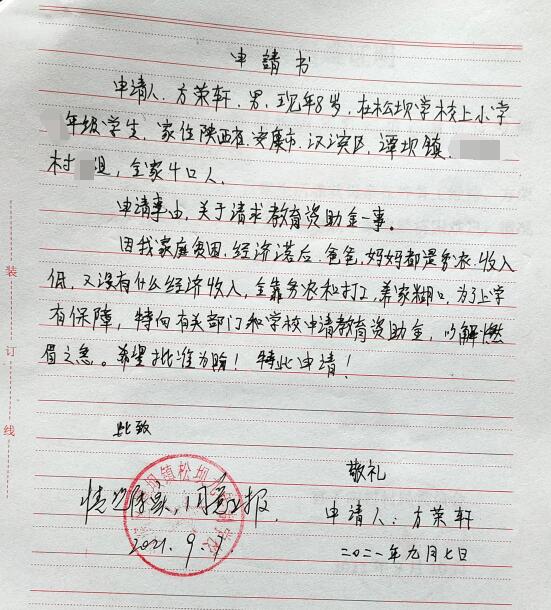 申請书
申请人.方荣轩.男.现年8岁,在松坝学校上小学
年级学生.家住陕西省.安康市.汉滨区.谭坝镇.
村 组,全家4口人.
申请事由.关于请求教育资助金一事.
因我家庭贫困.经济落后.爸爸.妈妈都是务农.收入
低.又没有什么经济收入,全靠务农和打工,养家糊口.为了上学
有保障,特向有关部门和学校申请教育资助金,以解燃
眉之急。希望批准为盼!特此申请!
装
订
线
此致
敬礼
情况属实,同意上报.
镇松坝
2021.9.7
申请人:方荣轩
二〇二一年九月七日